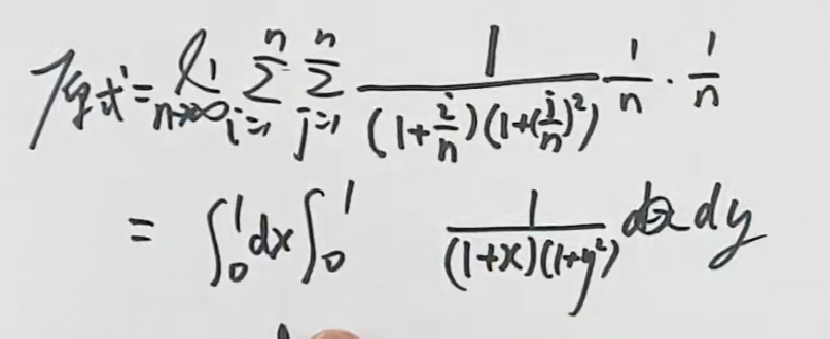 原式=lim n→∞ ∑_{i=1}^{n} ∑_{j=1}^{n} \frac{1}{(1+\frac{i}{n})(1+(\frac{j}{n})^2)} \frac{1}{n} · \frac{1}{n}
= ∫_0^1 dx ∫_0^1 \frac{1}{(1+x)(1+y^2)} dy